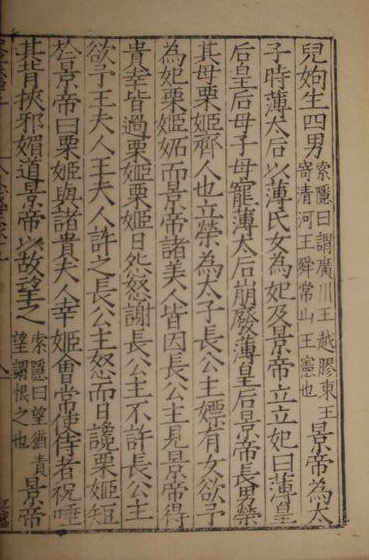 兒姁生四男索隱曰謂廣川王越膠東王寄清河王舜常山王憲也景帝為太
子時薄太后以薄氏女為妃及景帝立立妃曰薄皇
后皇后母子母寵薄太后崩廢薄皇后景帝長男榮
其母栗姬齊人也立榮為太子長公主嫖有女欲予
為妃栗姬妬而景帝諸美人皆因長公主見景帝得
貴幸皆過栗姬栗姬日怨怒謝長公主不許長公主
欲予王夫人王夫人許之長公主怒而日讒栗姬短
於景帝曰栗姬與諸貴夫人幸姬會常使侍者祝唾
其背挾邪媚道景帝以故望之索隱曰望猶責望謂恨之也景帝